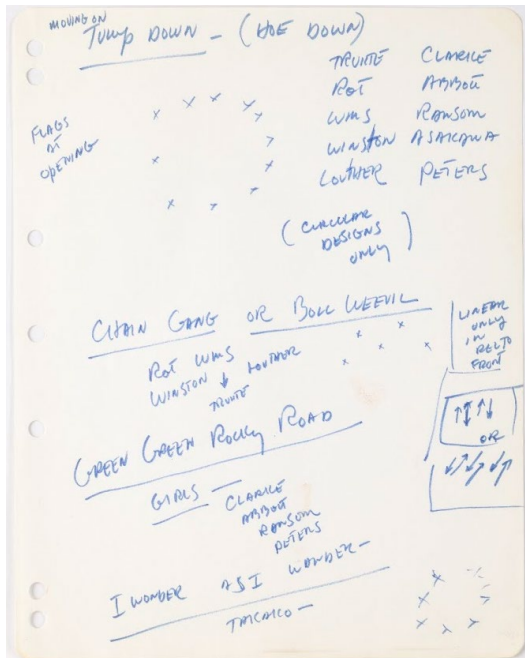 MOVING ON
JUMP DOWN - (HOE DOWN)
TRUITE CLARKE
ROT ABBOTT
WMS RANSOM
WINSTON ASAKAWA
LOUTHER PETERS
FLAGS
AT
OPENING
(CIRCULAR
DESIGNS
ONLY)
CHAIN GANG OR BOLL WEEVIL
ROT WMS
WINSTON ↓ LOUTHER
TRUITE
LINEAR
ONLY
IN
REL TO
FRONT
OR
GREEN GREEN ROCKY ROAD
GIRLS - CLARKE
ABBOTT
RANSOM
PETERS
I WONDER AS I WANDER -
TAKAKO -